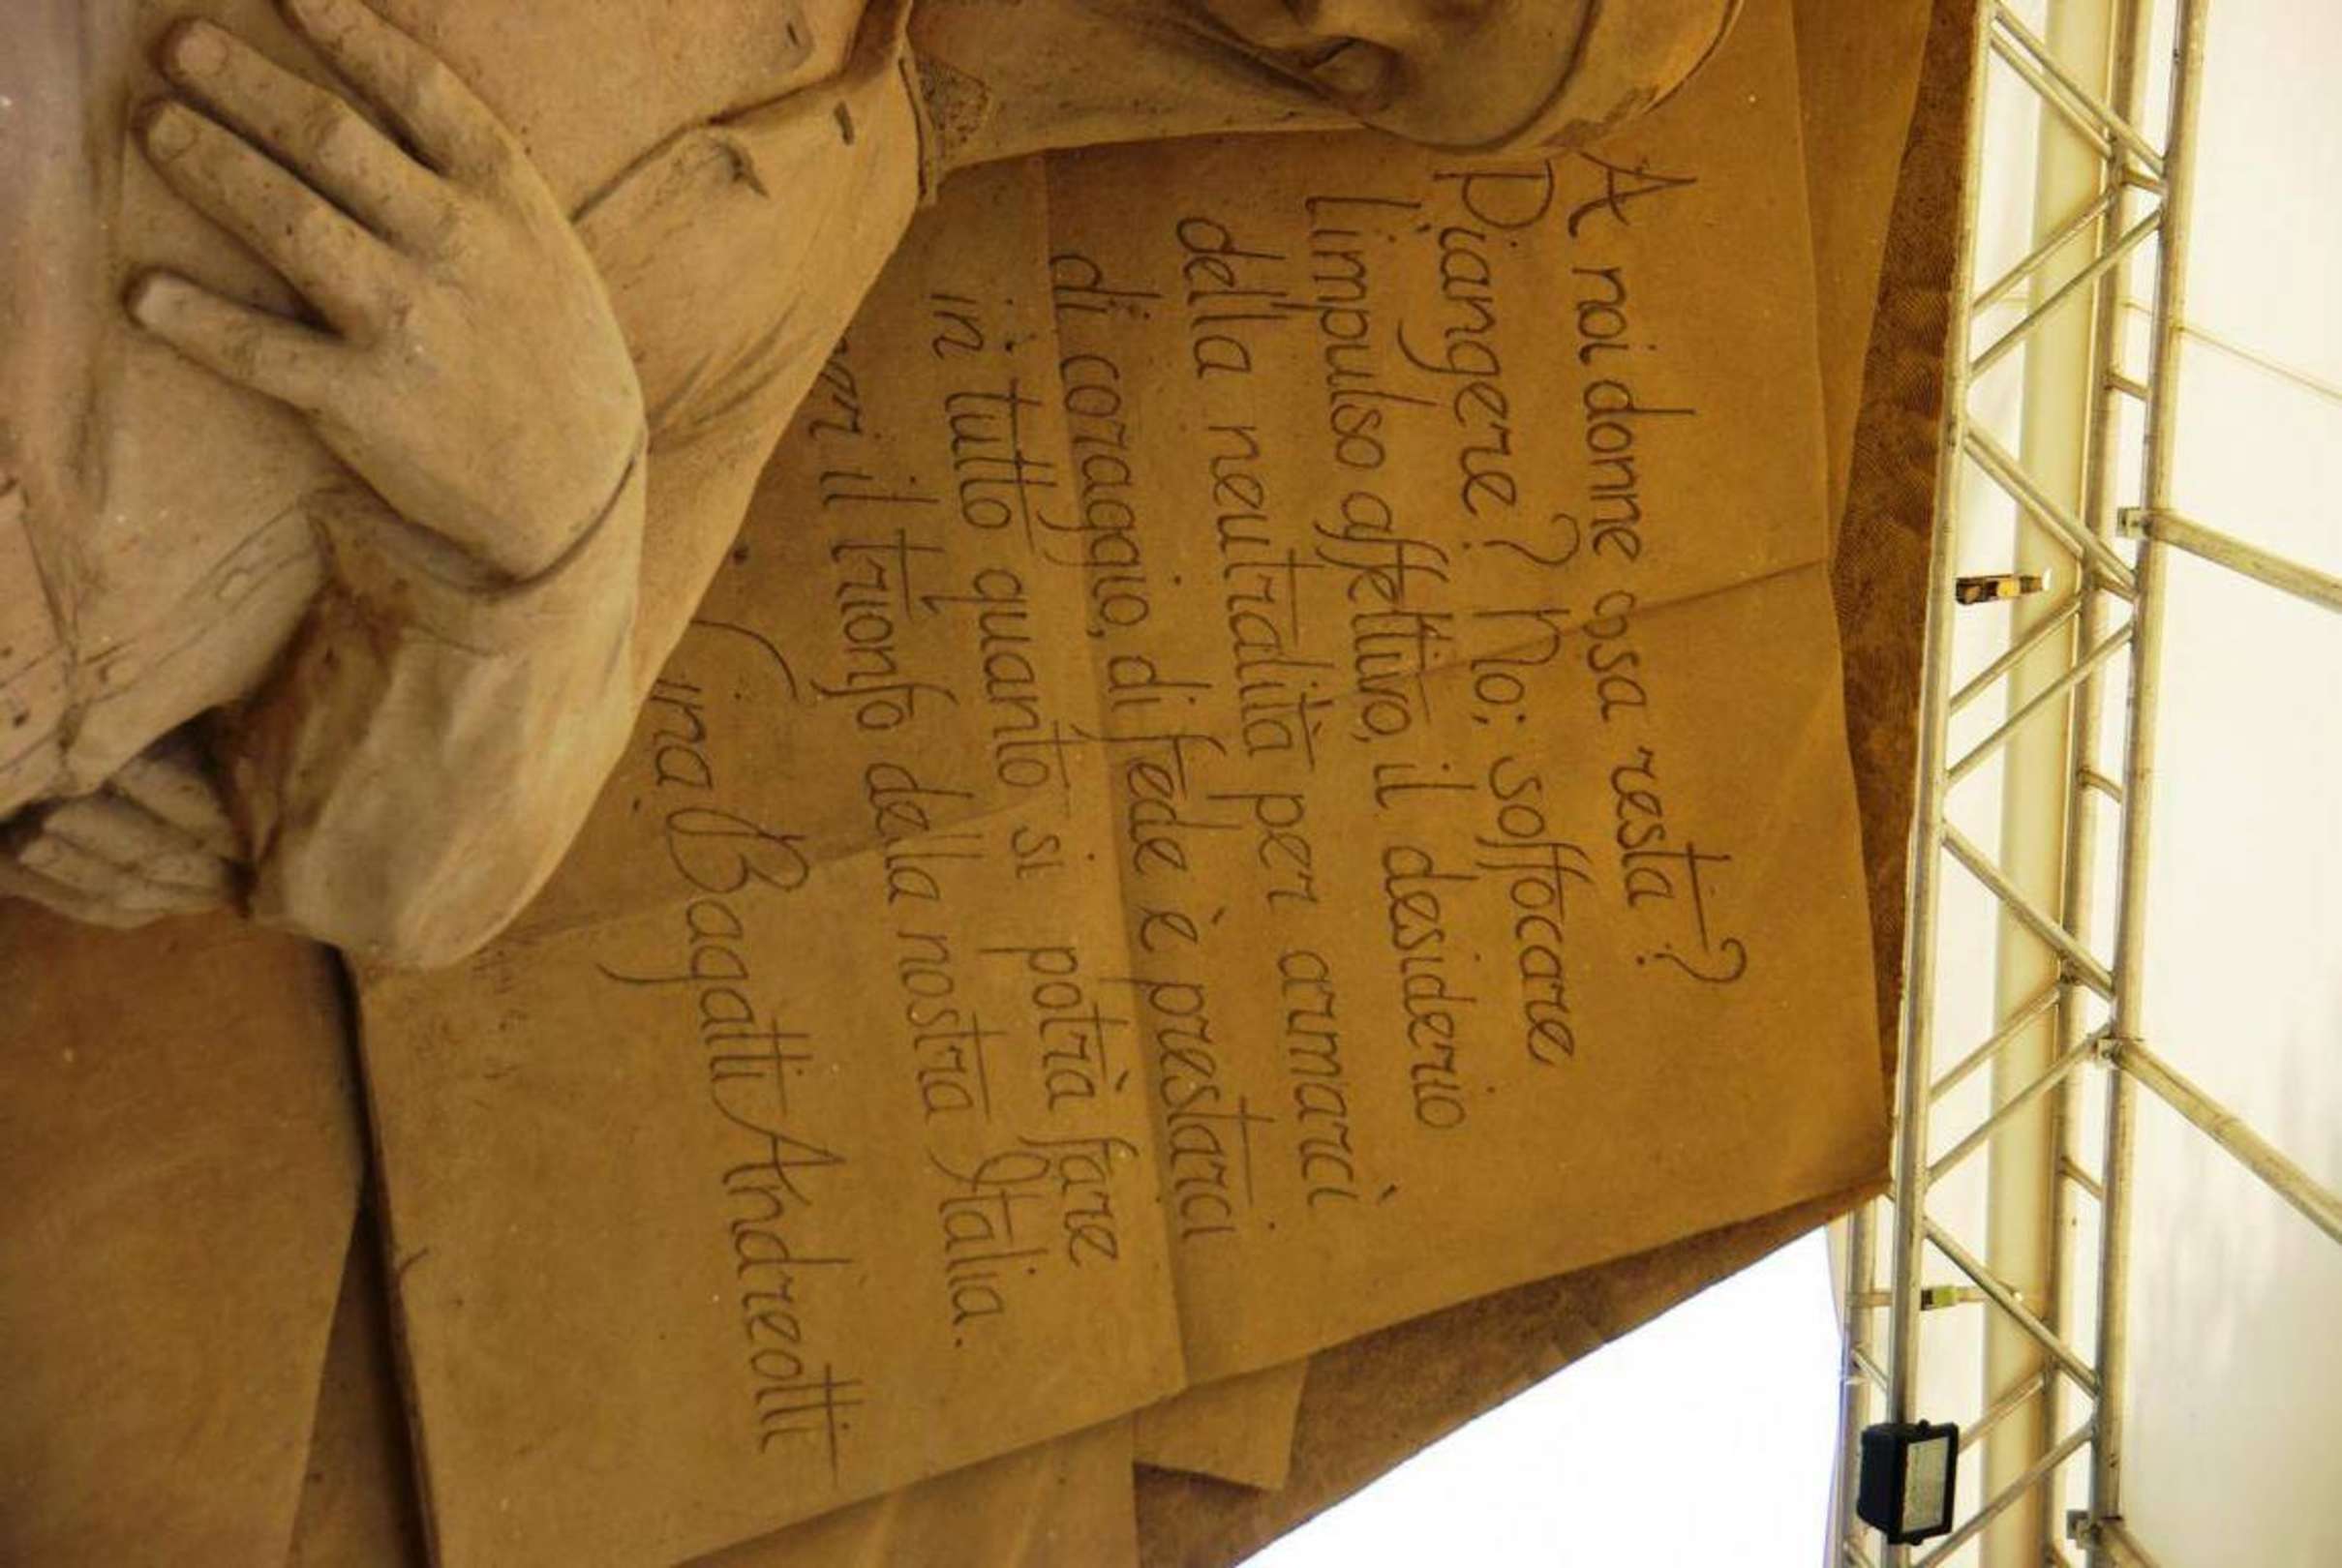 A noi donne cosa resta?
Piangere? No; soffocare
l'impulso affettivo, il desiderio
della neutralità per armarci
di coraggio, di fede e prestarci
in tutto quanto si potrà fare
per il trionfo della nostra Italia.
Gina Bagatti Andreotti